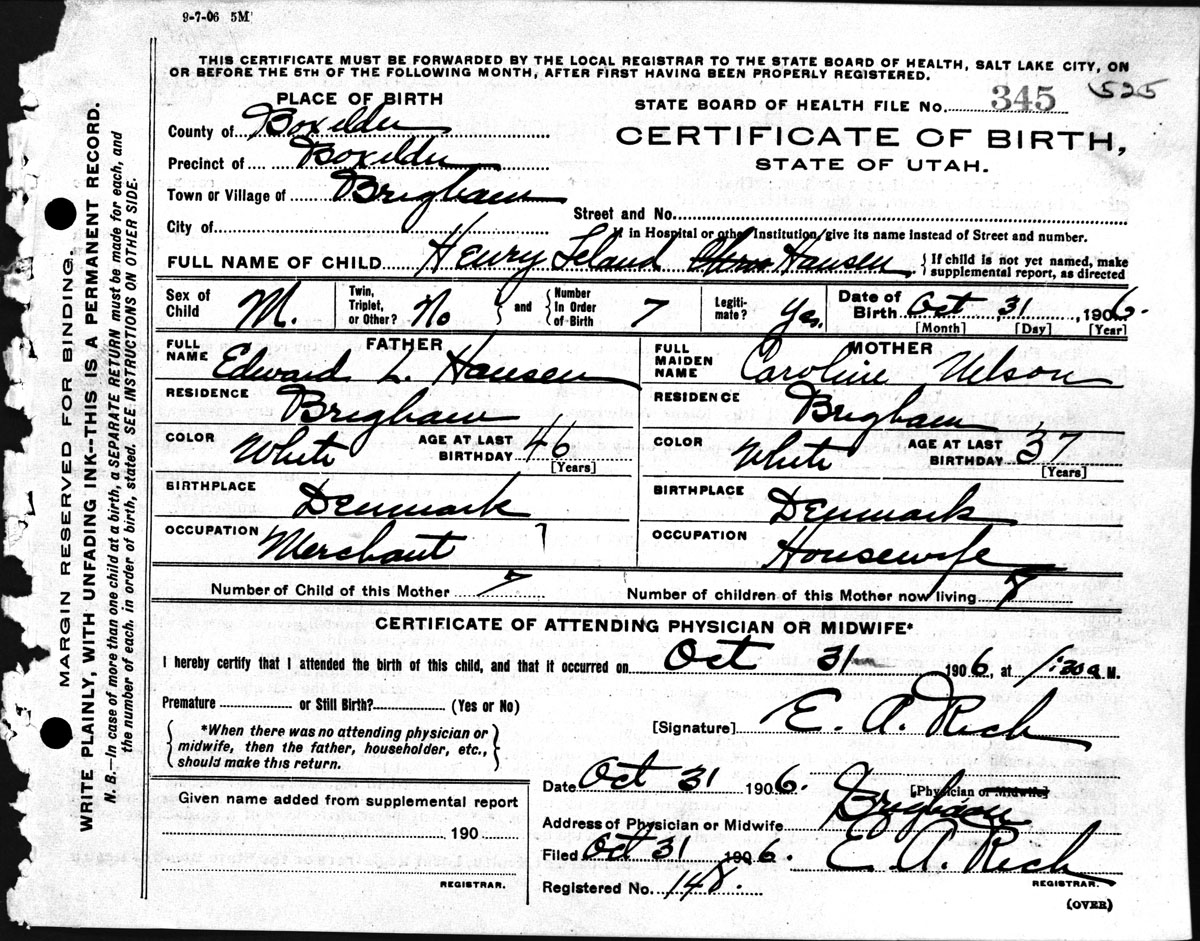 9-7-06 5M
THIS CERTIFICATE MUST BE FORWARDED BY THE LOCAL REGISTRAR TO THE STATE BOARD OF HEALTH, SALT LAKE CITY, ON
OR BEFORE THE 5TH OF THE FOLLOWING MONTH, AFTER FIRST HAVING BEEN PROPERLY REGISTERED.
MARGIN RESERVED FOR BINDING.
WRITE PLAINLY, WITH UNFADING INK--THIS IS A PERMANENT RECORD.
N. B.—In case of more than one child at a birth, a SEPARATE RETURN must be made for each, and
the number of each, in order of birth, stated. SEE INSTRUCTIONS ON OTHER SIDE.
PLACE OF BIRTH
County of Boxelder
Precinct of Boxelder
Town or Village of Brigham
City of
STATE BOARD OF HEALTH FILE No. 345 525
CERTIFICATE OF BIRTH,
STATE OF UTAH.
Street and No.
If in Hospital or other Institution, give its name instead of Street and number.
FULL NAME OF CHILD Henry Leland Hansen { If child is not yet named, make
supplemental report, as directed
Sex of Child M. Twin, Triplet, or Other? No and Number In Order of Birth 7 Legitimate? Yes. Date of Birth Oct 31, 1906.
[Month] [Day] [Year]
FATHER
FULL NAME Edward L. Hansen
RESIDENCE Brigham
COLOR White AGE AT LAST BIRTHDAY 46
[Years]
BIRTHPLACE Denmark
OCCUPATION Merchant
MOTHER
FULL MAIDEN NAME Caroline Nelson
RESIDENCE Brigham
COLOR White AGE AT LAST BIRTHDAY 37
[Years]
BIRTHPLACE Denmark
OCCUPATION Housewife
Number of Child of this Mother 7 Number of children of this Mother now living
CERTIFICATE OF ATTENDING PHYSICIAN OR MIDWIFE*
I hereby certify that I attended the birth of this child, and that it occurred on Oct 31 1906, at 1:30 a M.
Premature or Still Birth? (Yes or No)
*When there was no attending physician or
midwife, then the father, householder, etc.,
should make this return.
[Signature] E. A. Rich
[Physician or Midwife]
Date Oct 31 1906.
Address of Physician or Midwife Brigham
Filed Oct 31 1906. E. A. Rich
REGISTRAR.
Registered No. 148.
Given name added from supplemental report
190
REGISTRAR.
(OVER)